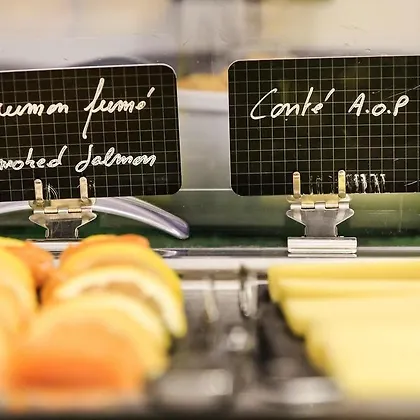 aumon fumé
smoked salmon
Comté A.O.P